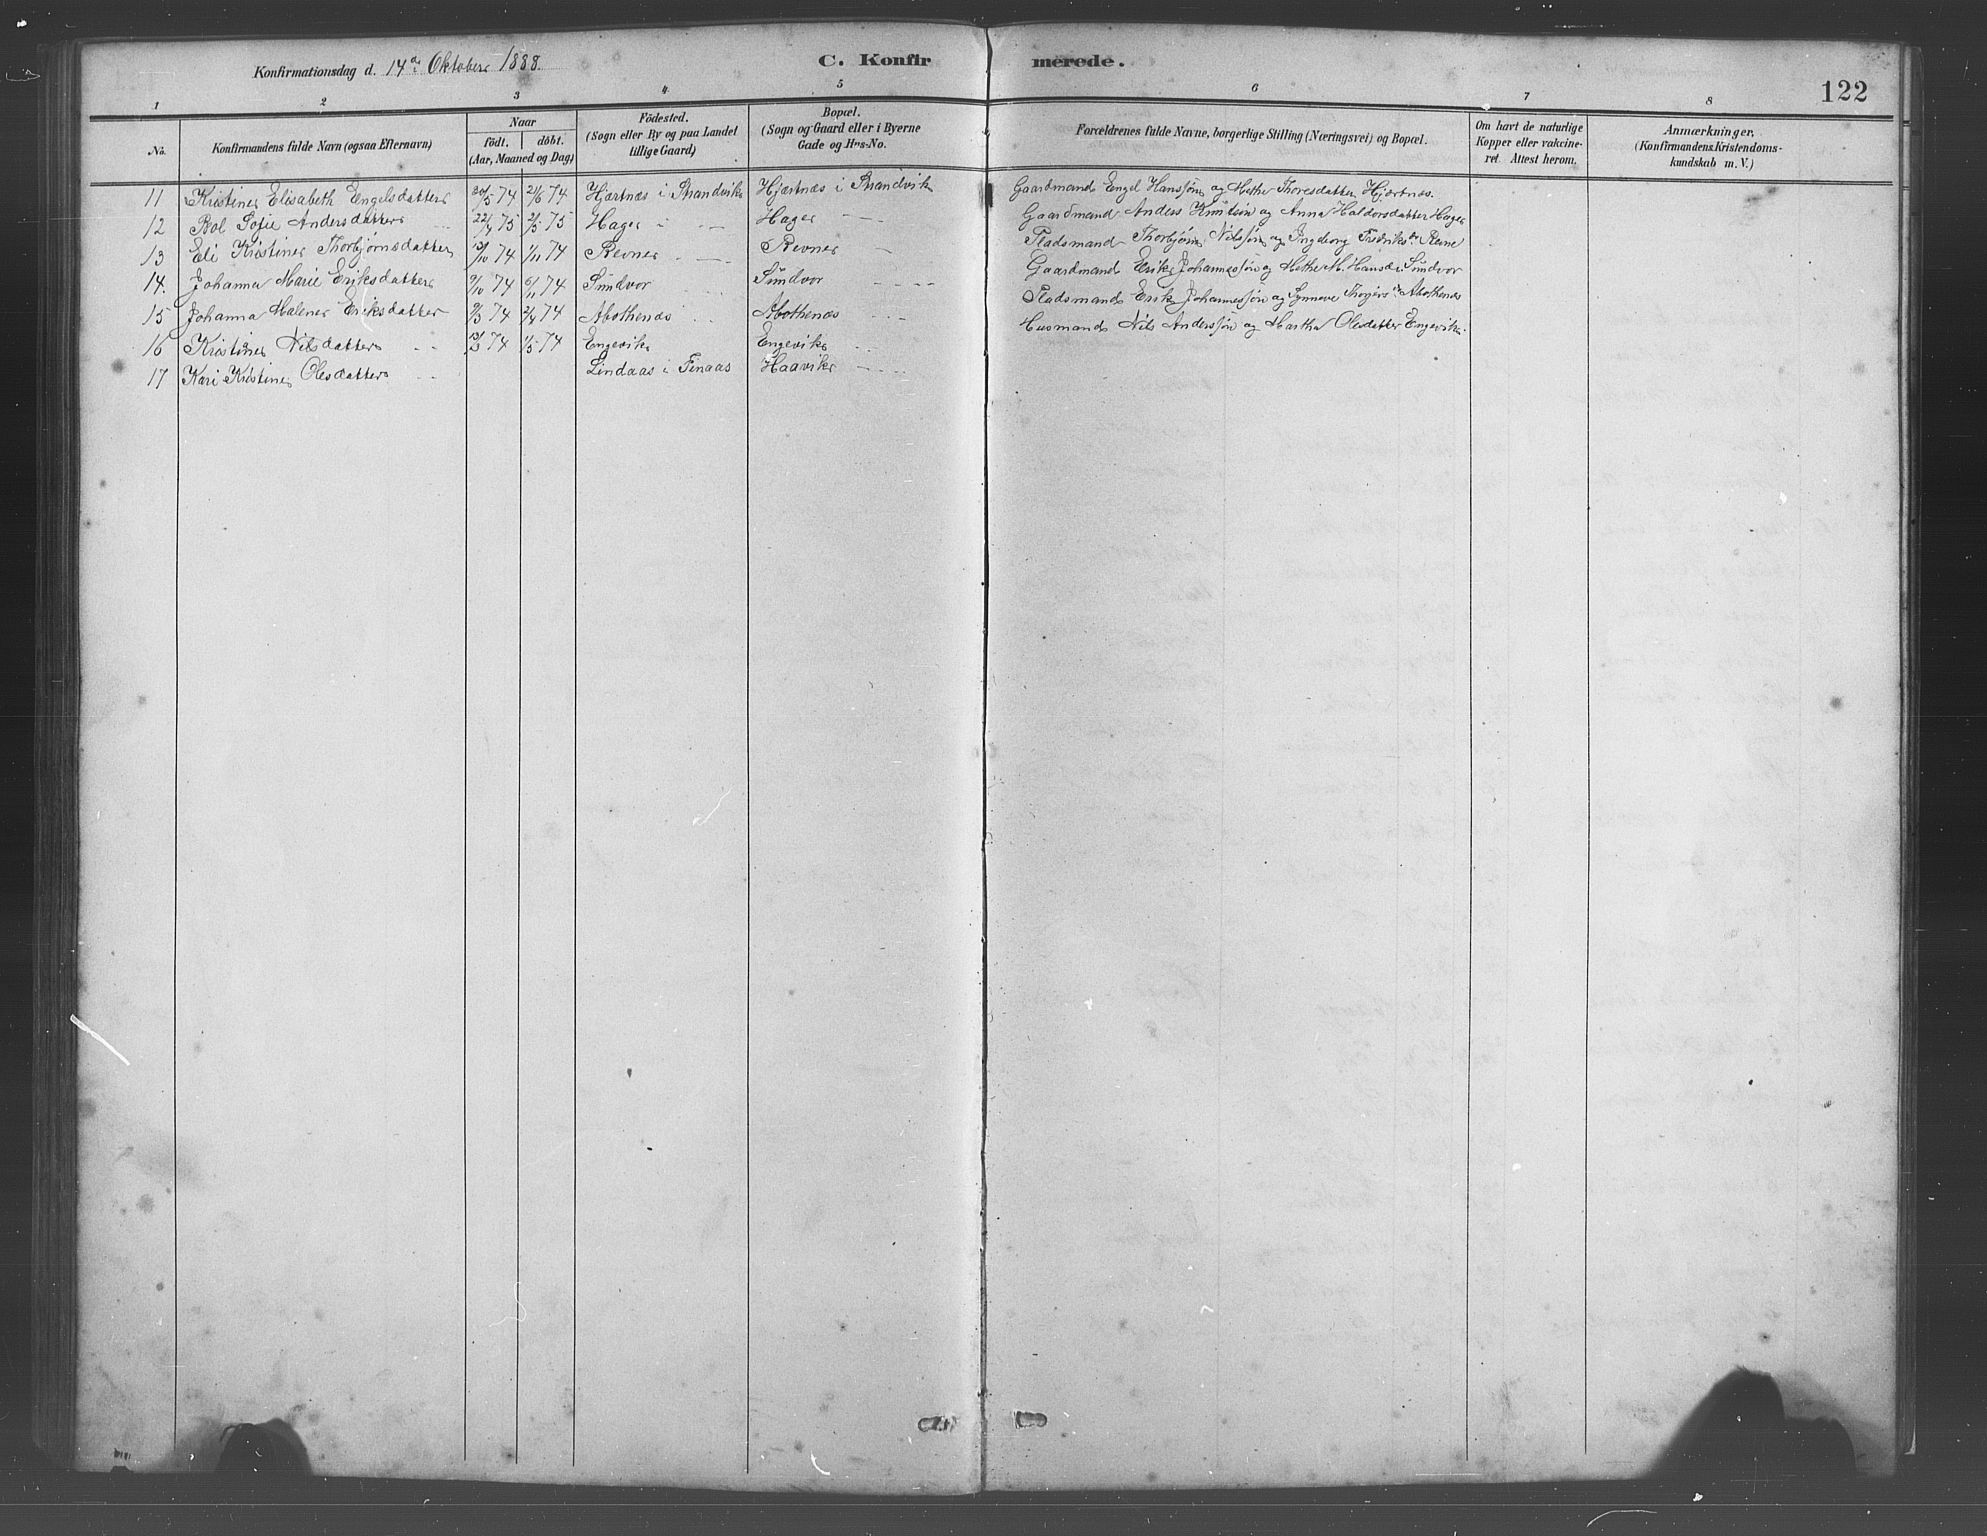 Konfirmationsdag d. 14de Oktober 1888. C. Konfirmerede. 122
1 2 3 4 5 6 7 8
No. Konfirmandens fulde Navn (ogsaa Efternavn) Naar födt. döbt. (Aar, Maaned og Dag) Födested. (Sogn eller By og paa Landet tillige Gaard) Bopæl. (Sogn og Gaard eller i Byerne Gade og Hus-No. Forældrenes fulde Navne, borgerlige Stilling (Næringsvei) og Bopæl. Om havt de naturlige Kopper eller vakcineret. Attest herom. Anmærkninger. (Konfirmandens Kristendomskundskab m. V.)
11 Kristine Elisabeth Engelsdatter 20/5 74 21/6 74 Hjærtnæs i Strandvik Hjærtnæs i Strandvik Gaardmand Engel Hanssøn og Methe Thoresdatter Hjærtnæs.
12 Rol Sofie Andersdatter 22/4 75 2/5 75 Hager Hager Gaardmand Anders Knutsøn og Anna Haldorsdatter Hager
13 Eli Kristine Thorbjørnsdatter 13/10 74 1/11 74 Revne Revne Pladsmand Thorbjørn Nilssøn og Ingeborg Fredriksdr Revne
14. Johanna Marie Eriksdatter 9/10 74 6/11 74 Sundvor Sundvor Gaardmand Erik Johannessøn og Methe M. Hansdr Sundvor
15 Johanna Malene Eriksdatter 9/3 74 2/4 74 Abothenæs Abothenæs Pladsmand Erik Johannessøn og Synneve Abothenæs
16 Kristine Nilsdatter 13/3 74 1/5 74 Engevik Engevik Husmand Nils Anderssøn og Martha Olesdatter Engevik.
17 Kari Kristine Olesdatter Lindaas i Finaas Haavik